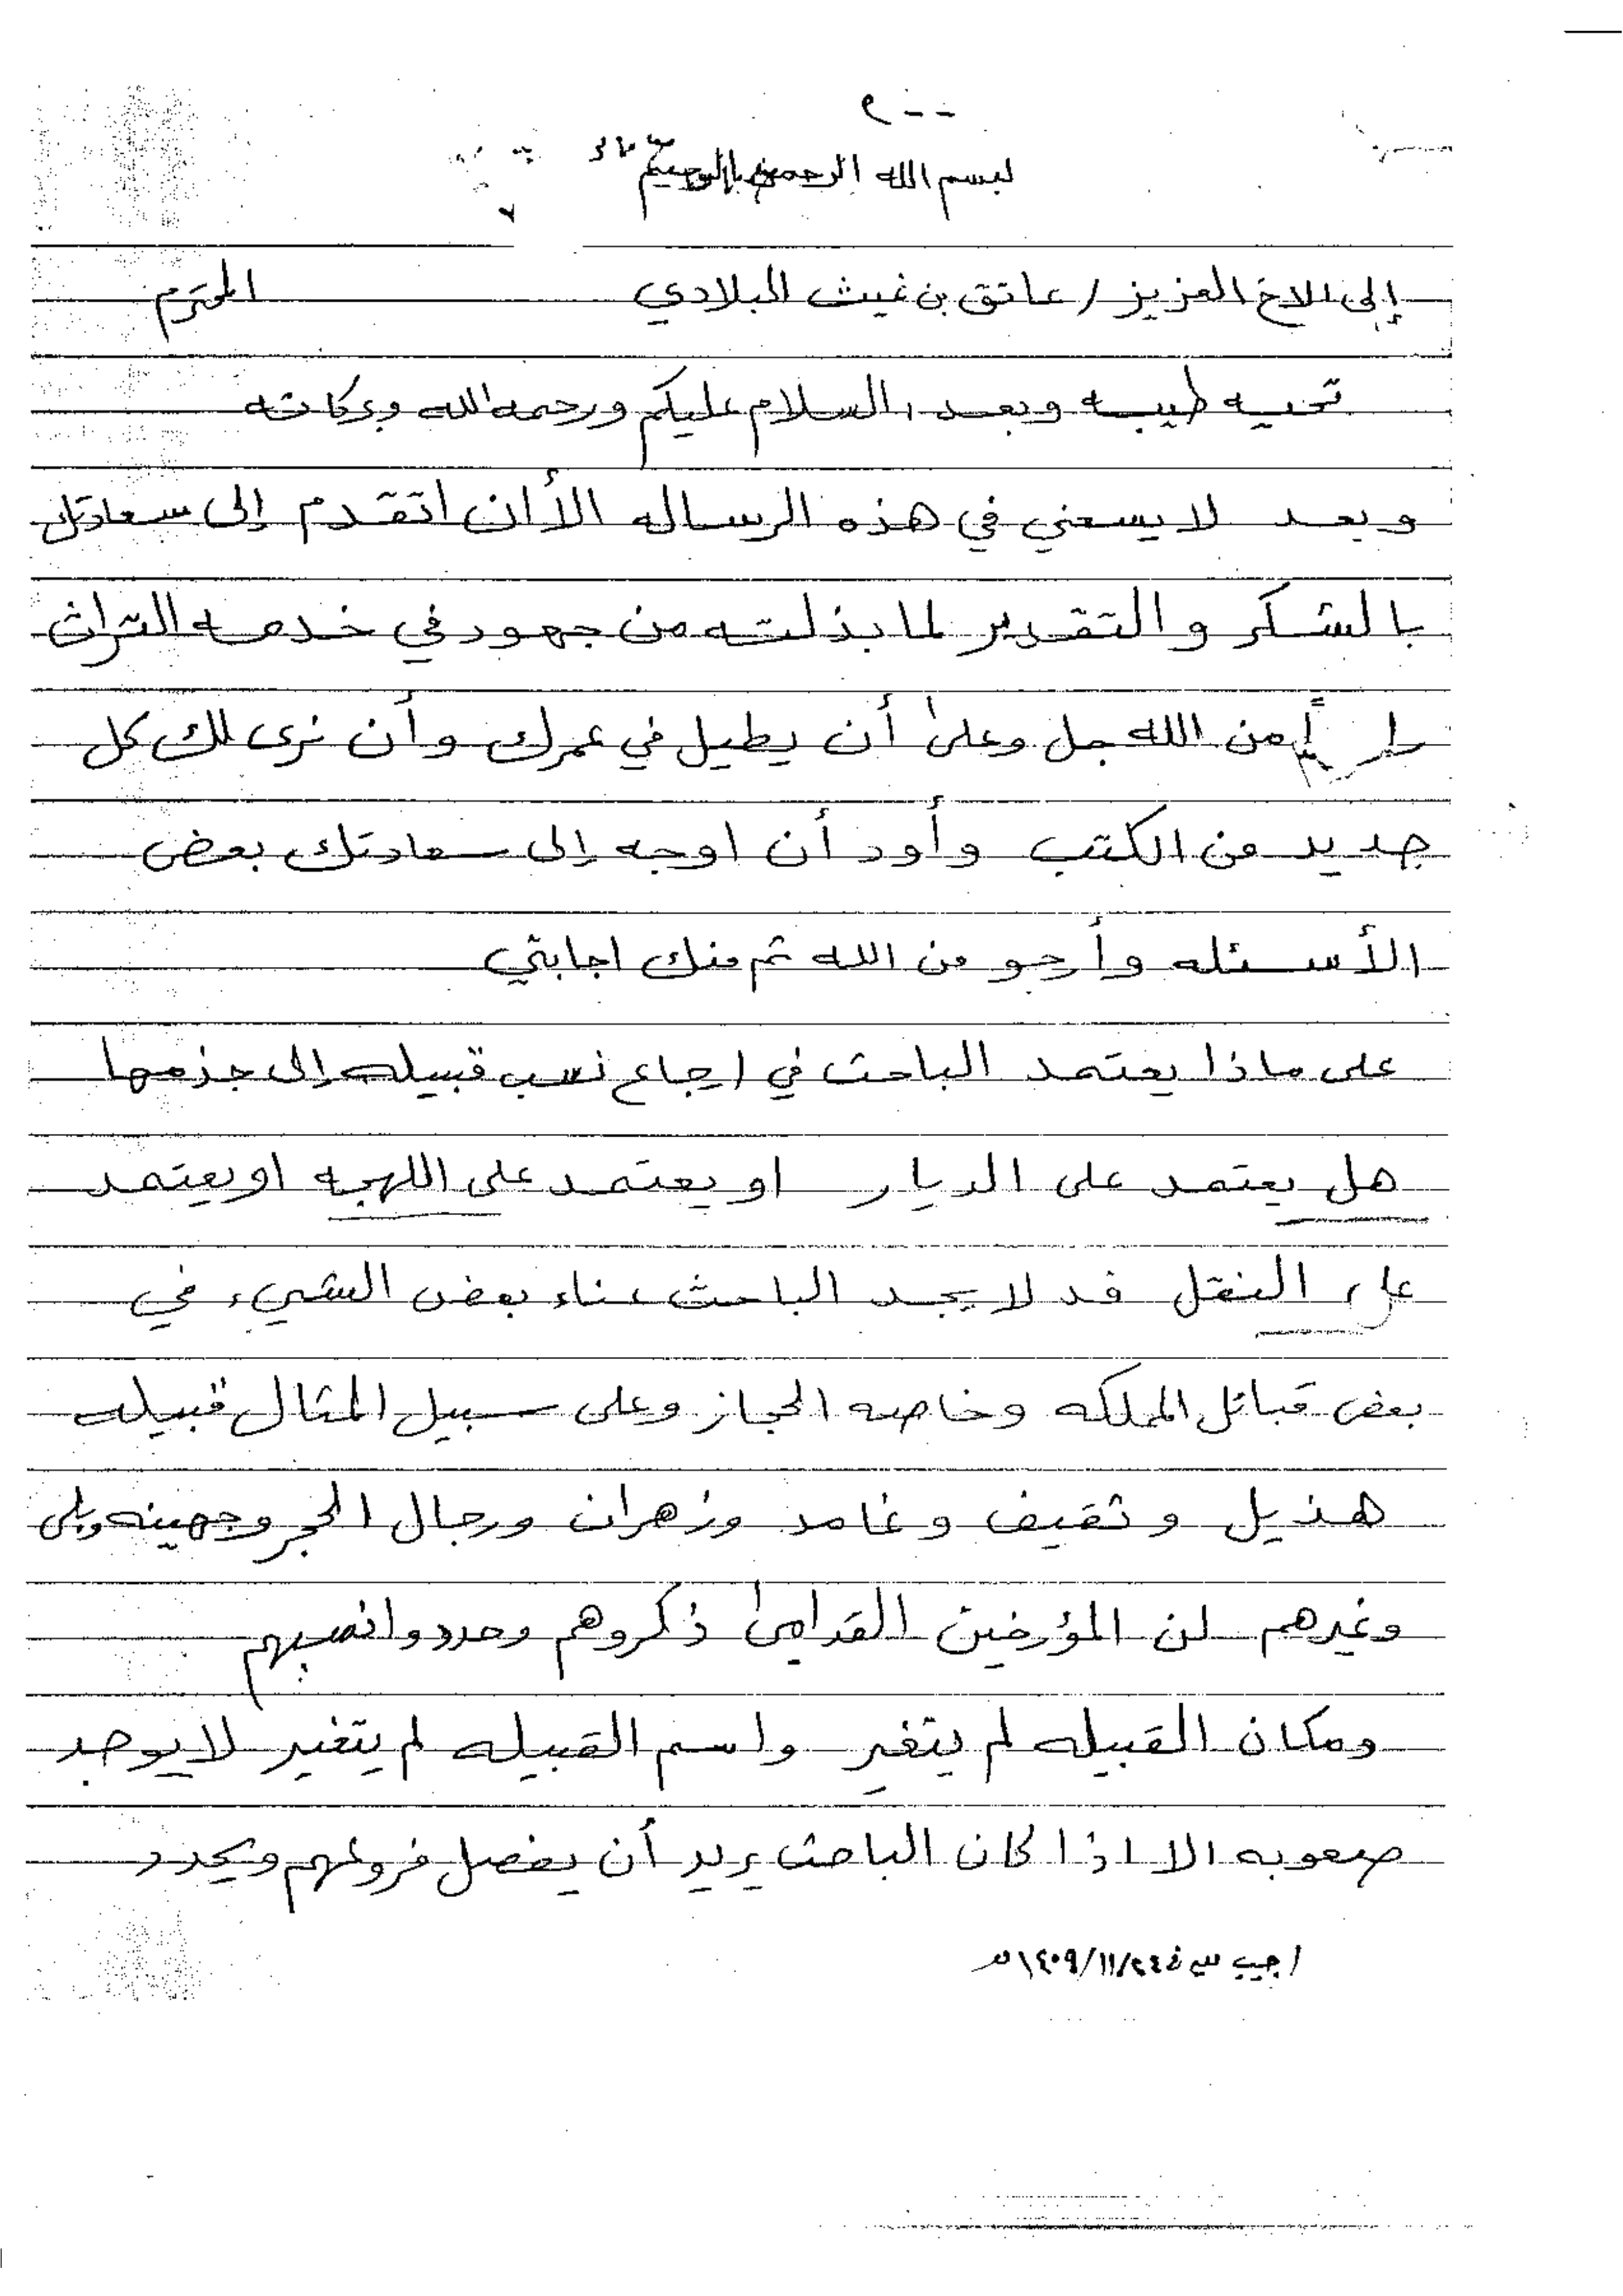 بسم الله الرحمن الرحيم
إلى الاخ العزيز / عاتق بن غيث البلادي المحترم
تحيه طيبه وبعد، السلام عليكم ورحمه الله وبركاته
وبعد لا يسعني في هذه الرساله الأأن اتقدم إلى سعادتك
بالشكر والتقدير لما بذلته من جهود في خدمه التراث
من الله جل وعلى أن يطيل في عمرك وأن نرى لك كل
جديد من الكتب وأود أن اوجه إلى سعادتك بعض
الأسئله وأرجو من الله ثم منك اجابتي
على ماذا يعتمد الباحث في ارجاع نسب قبيله إلى جذمها
هل يعتمد على الديار او يعتمد على اللهجه او يعتمد
على النقل قد لا يجد الباحث عناء بعض الشيء في
بعض قبائل المملكه وخاصه الحجاز وعلى سبيل المثال قبيله
هذيل وثقيف وغامد وزهران ورجال الحجر وجهينه وبلى
وغيرهم لن المؤرخين القدامى ذكروهم وحددوا نسبهم
ومكان القبيله لم يتغير واسم القبيله لم يتغير لا يوجد
صعوبه الا اذا كان الباحث يريد أن يفصل فروعهم ويحدد
اجيب في ١٤٠٩/١١/٢٤هـ